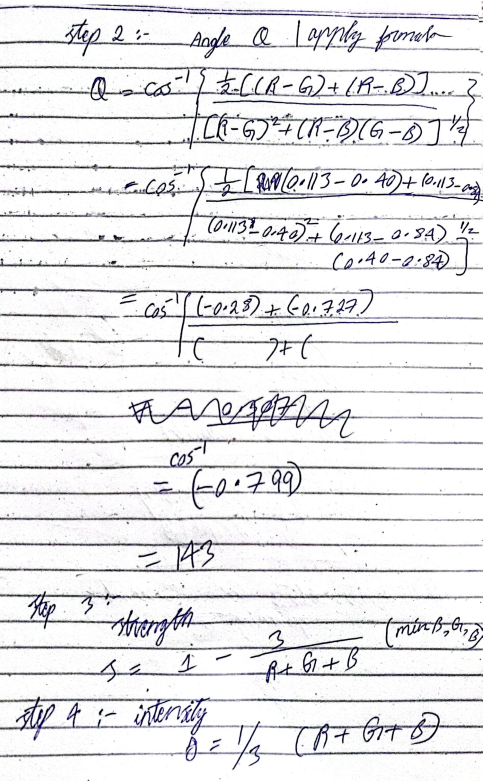 step 2 :- Angle Q | apply formula
Q = cos⁻¹ { ½ [(R-G) + (R-B)] .... / [(R-G)² + (R-B)(G-B)]^½ }
= cos⁻¹ { ½ [(0.113 - 0.40) + (0.113 - / (0.113 - 0.40)² + (0.113 - 0.84)^½
(0.40 - 0.84) ] }
= cos⁻¹ { (-0.28) + (-0.727) / ( ) + (
cos⁻¹
= (-0.799)
= 143
step 3 :-
strength
s = 1 - 3 / R+G+B (min B, G, B)
step 4 :- intensity
= 1/3 (R+G+B)